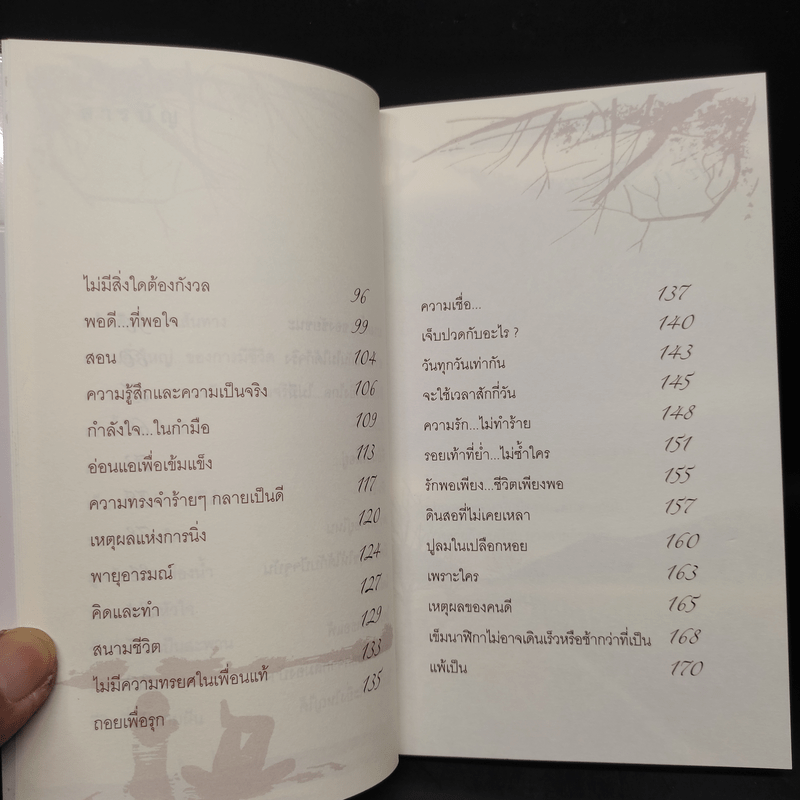 สารบัญ
ไม่มีสิ่งใดต้องกังวล 96
พอดี...ที่พอใจ 99
สอน 104
ความรู้สึกและความเป็นจริง 106
กำลังใจ...ในกำมือ 109
อ่อนแอเพื่อเข้มแข็ง 113
ความทรงจำร้ายๆ กลายเป็นดี 117
เหตุผลแห่งการนิ่ง 120
พายุอารมณ์ 124
คิดและทำ 127
สนามชีวิต 129
ไม่มีความทรยศในเพื่อนแท้ 133
ถอยเพื่อรุก 135
ความเชื่อ... 137
เจ็บปวดกับอะไร ? 140
วันทุกวันเท่ากัน 143
จะใช้เวลาสักกี่วัน 145
ความรัก...ไม่ทำร้าย 148
รอยเท้าที่ย่ำ...ไม่ซ้ำใคร 151
รักพอเพียง...ชีวิตเพียงพอ 155
ดินสอที่ไม่เคยเหลา 157
ปูลมในเปลือกหอย 160
เพราะใคร 163
เหตุผลของคนดี 165
เข็มนาฬิกาไม่อาจเดินเร็วหรือช้ากว่าที่เป็น 168
แพ้เป็น 170